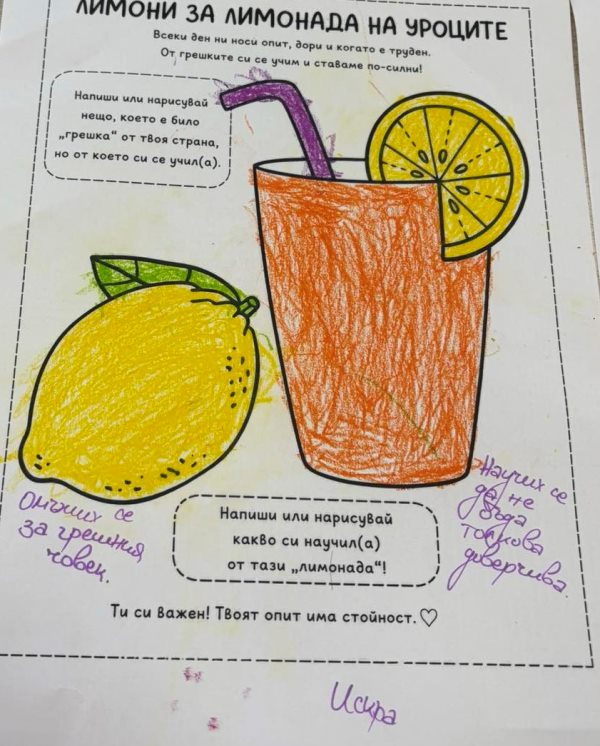 ЛИМОНИ ЗА ЛИМОНАДА НА УРОЦИТЕ
Всеки ден ни носи опит, дори и когато е труден.
От грешките си се учим и ставаме по-силни!
Напиши или нарисувай
нещо, което е било
„грешка“ от твоя страна,
но от което си се учил(а).
Омъжих се
за грешния
човек.
Научих се
да не
бъда
толкова
доверчива.
Напиши или нарисувай
какво си научил(а)
от тази „лимонада“!
Ти си важен! Твоят опит има стойност.♡
Искра